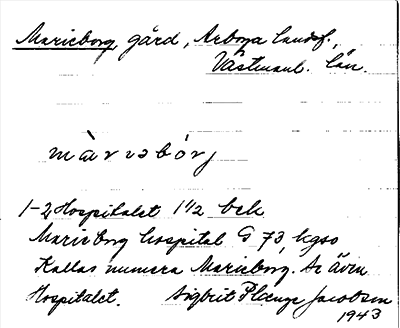 Marieborg gård, Arboga landsf.,
Västmanl. län.
màrɩəbórj
1-2 Hospitalet 1 1/2 bek
Marieborg hospital G 73, kgso
Kallas numera Marieborg. Se även
Hospitalet. Sigbrit Plænge Jacobson
1943